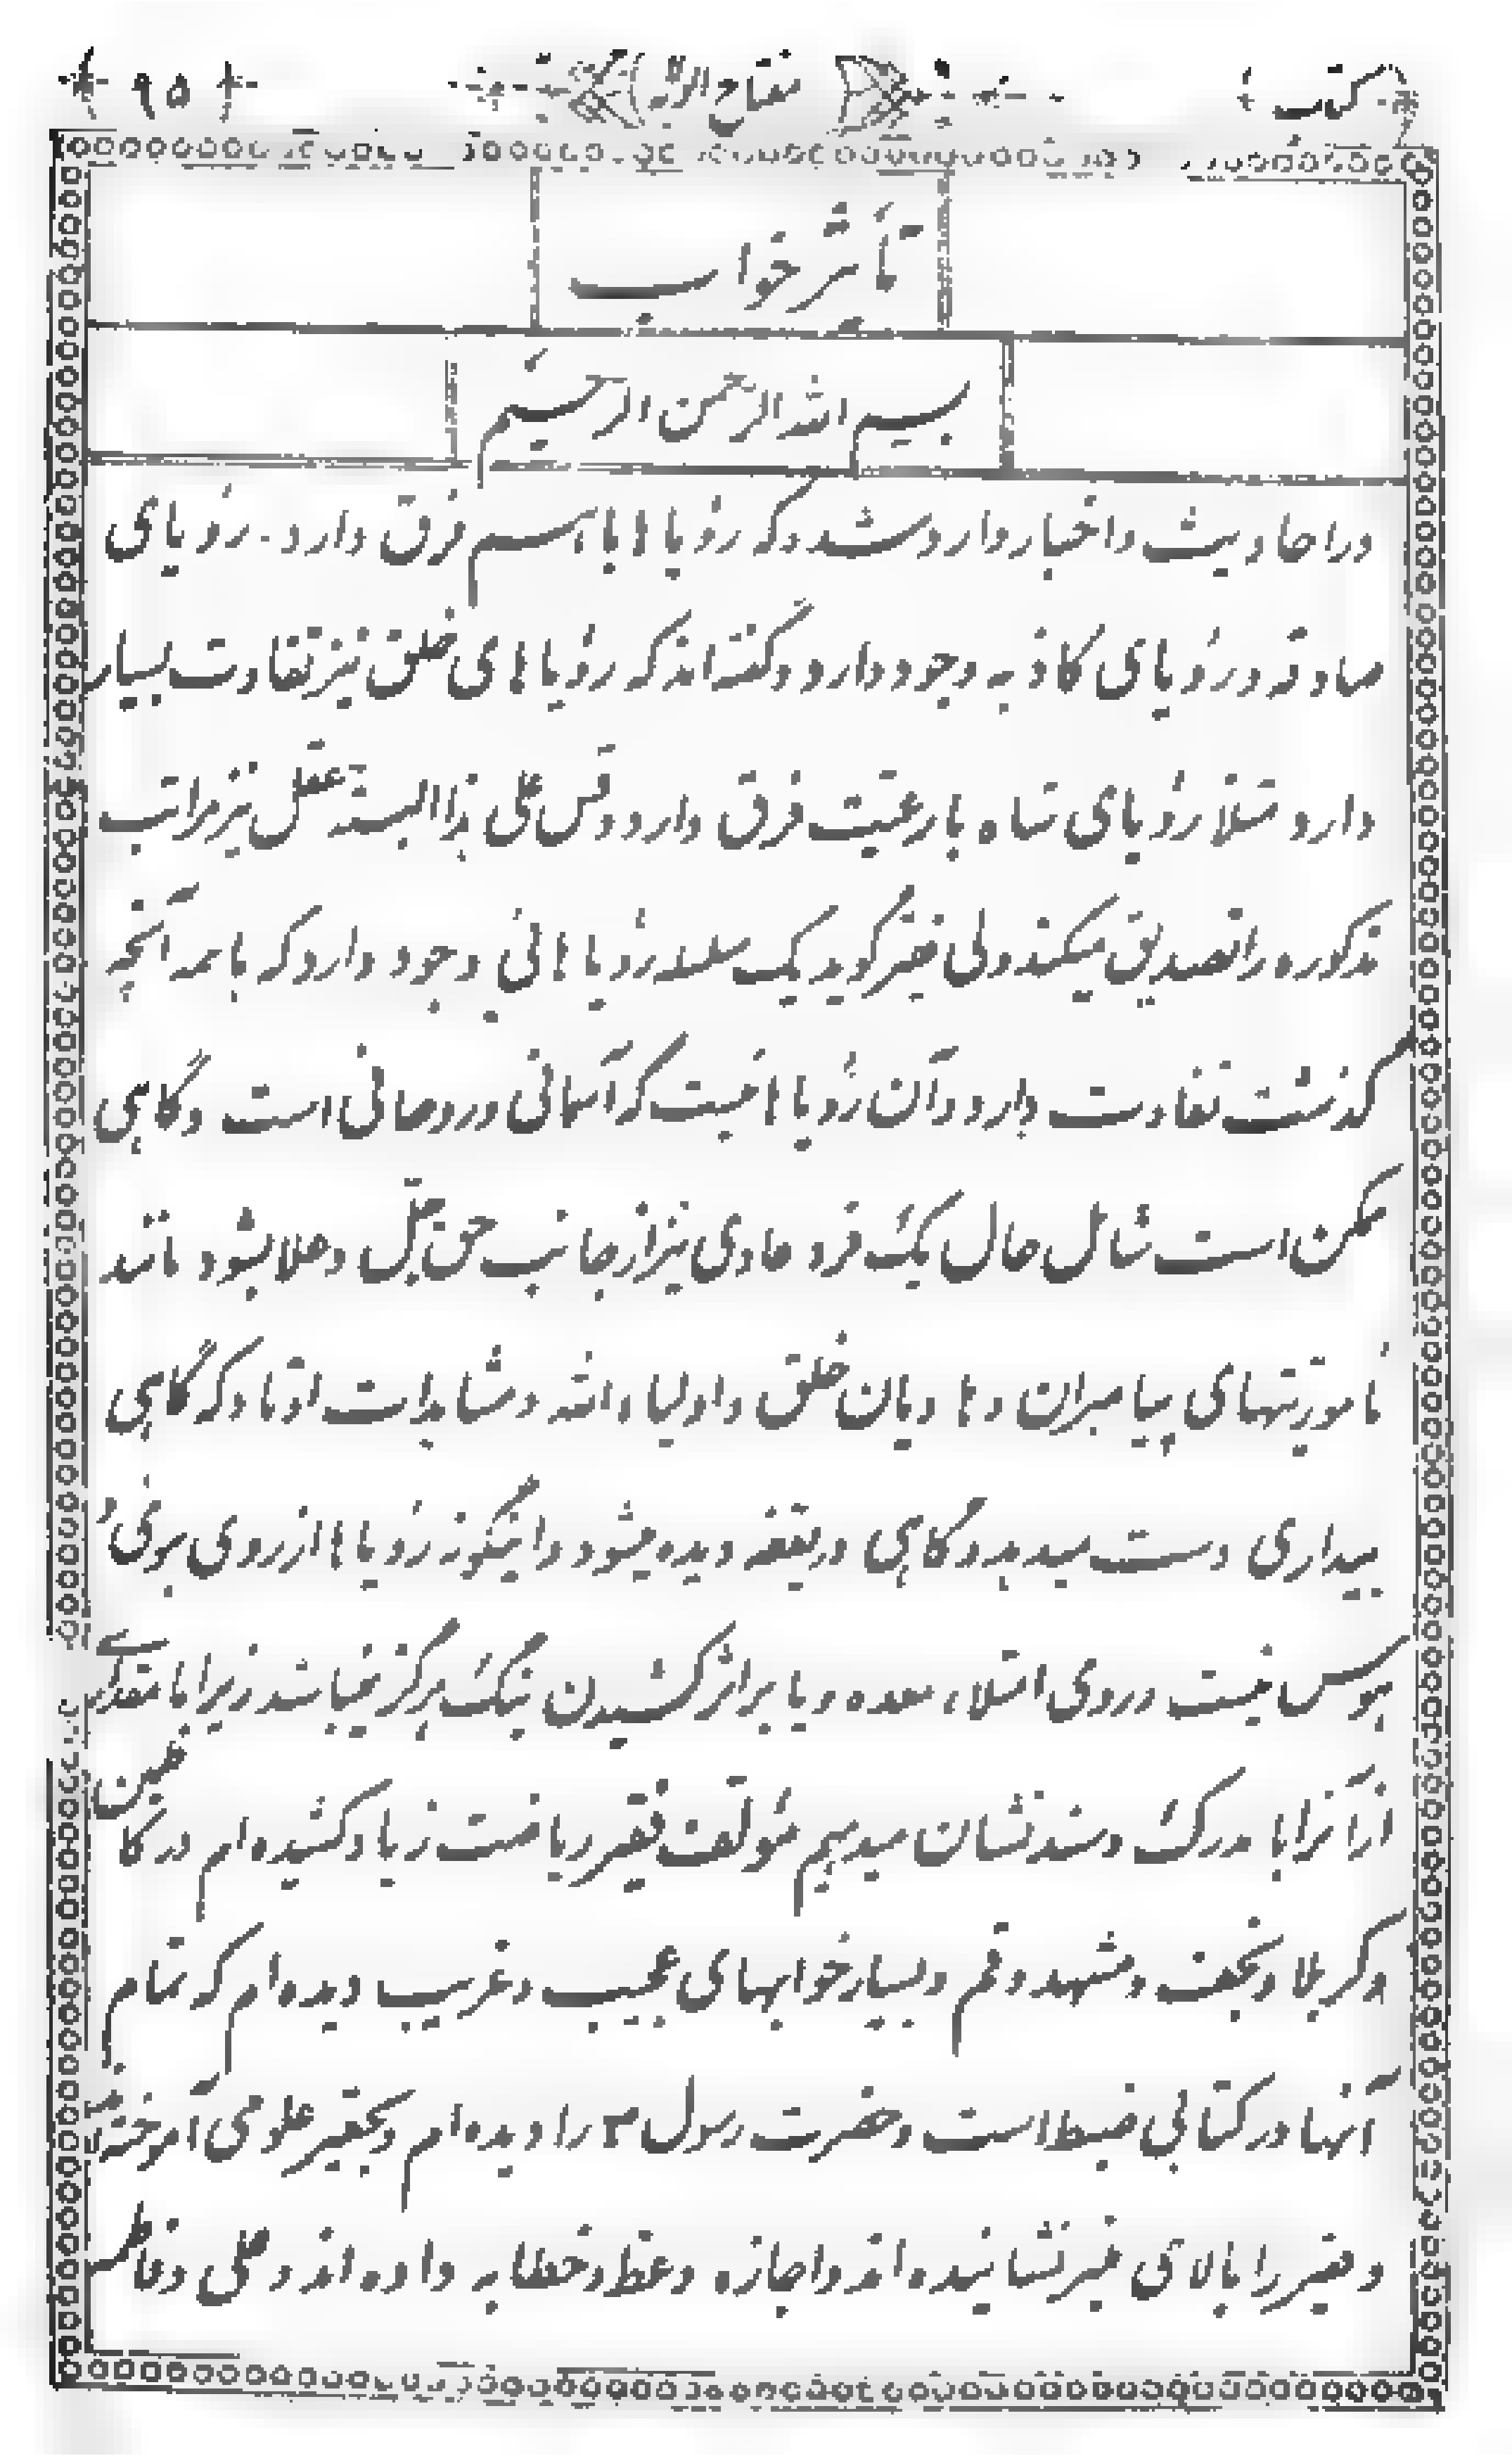 کتاب مفتاح الرؤیا ۹۵
تأثیر خواب
بسم الله الرحمن الرحیم
در احادیث و اخبار وارد شده که رؤیاها باهم فرق دارد. رؤیای
صادقه و رؤیای کاذبه وجود دارد و گفته‌اند که رؤیاهای خلق نیز تفاوت بسیار
دارد مثلا رؤیای شاه با رعیت فرق دارد و قس علی هذا البته عقل نیز مراتب
مذکوره را تصدیق میکند ولی فقیر گوید یک سلسله رؤیاهائی وجود دارد که با همه آنچه
گذشت تفاوت دارد و آن رؤیاهائیست که آسمانی و روحانی است و گاهی
ممکن است شامل حال یک فرد عادی نیز از جانب حق جل و علا بشود مانند
مأموریتهای پیامبران و هادیان خلق و اولیاء الله و مشاهدات اوتاد که گاهی
بیداری دست میدهد و گاهی در یقظه دیده میشود و اینگونه رؤیاها از روی هوی و
هوس نیست و روی امتلاء معده و یا بر اثر کشیدن بنگ هرگز نمیباشد زیرا ما مقداری
از آنرا با مدرک و سند نشان میدهیم مؤلف فقیر ریاضت زیاد کشیده‌ام در کاظمین
و کربلا و نجف و مشهد و قم و بسیار خوابهای عجیب و غریب دیده‌ام که تمام
آنها در کتابی ضبط است و حضرت رسول ص را دیده‌ام و بحقیر علومی آموخته
و فقیر را بالای منبر نشانیده‌اند و اجازه وعظ و خطابه داده‌اند و علی و فاطمه